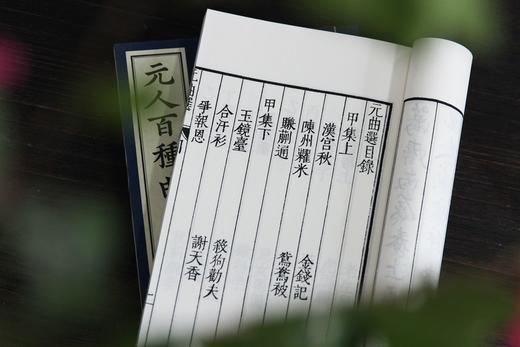 元曲選目錄
甲集上
漢宮秋 金錢記
陳州糶米 鴛鴦被
賺蒯通
甲集下
玉鏡臺 殺狗勸夫
合汗衫 謝天香
爭報恩
曲選
元人百種曲